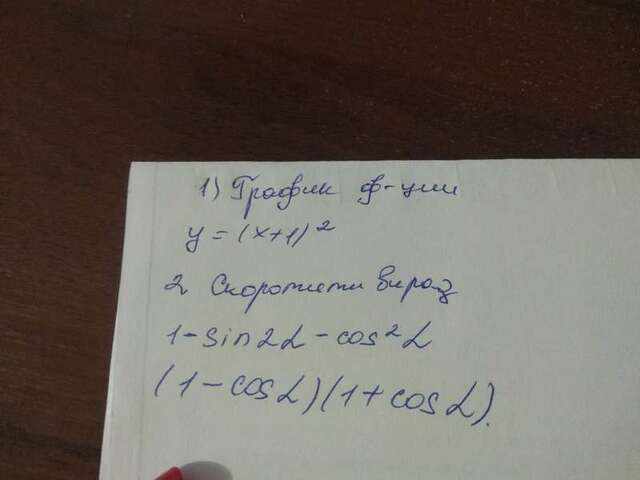 1) График ф-ции
y = (x+1)²
2 Скоротити вираз
1-sin2α-cos²α
(1-cosα)(1+cosα).